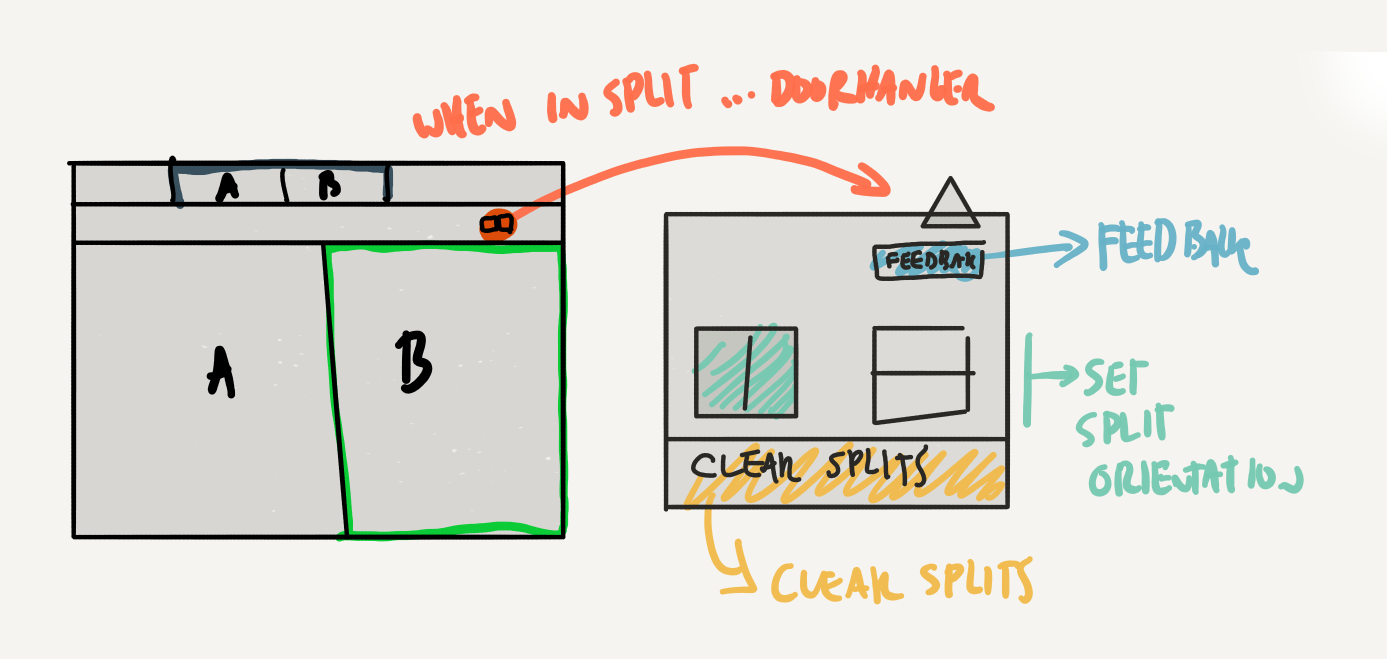 WHEN IN SPLIT ... DOORHANGER
A B
FEEDBACK
FEEDBACK
A B
SET
SPLIT
ORIENTATION
CLEAR SPLITS
CLEAR SPLITS